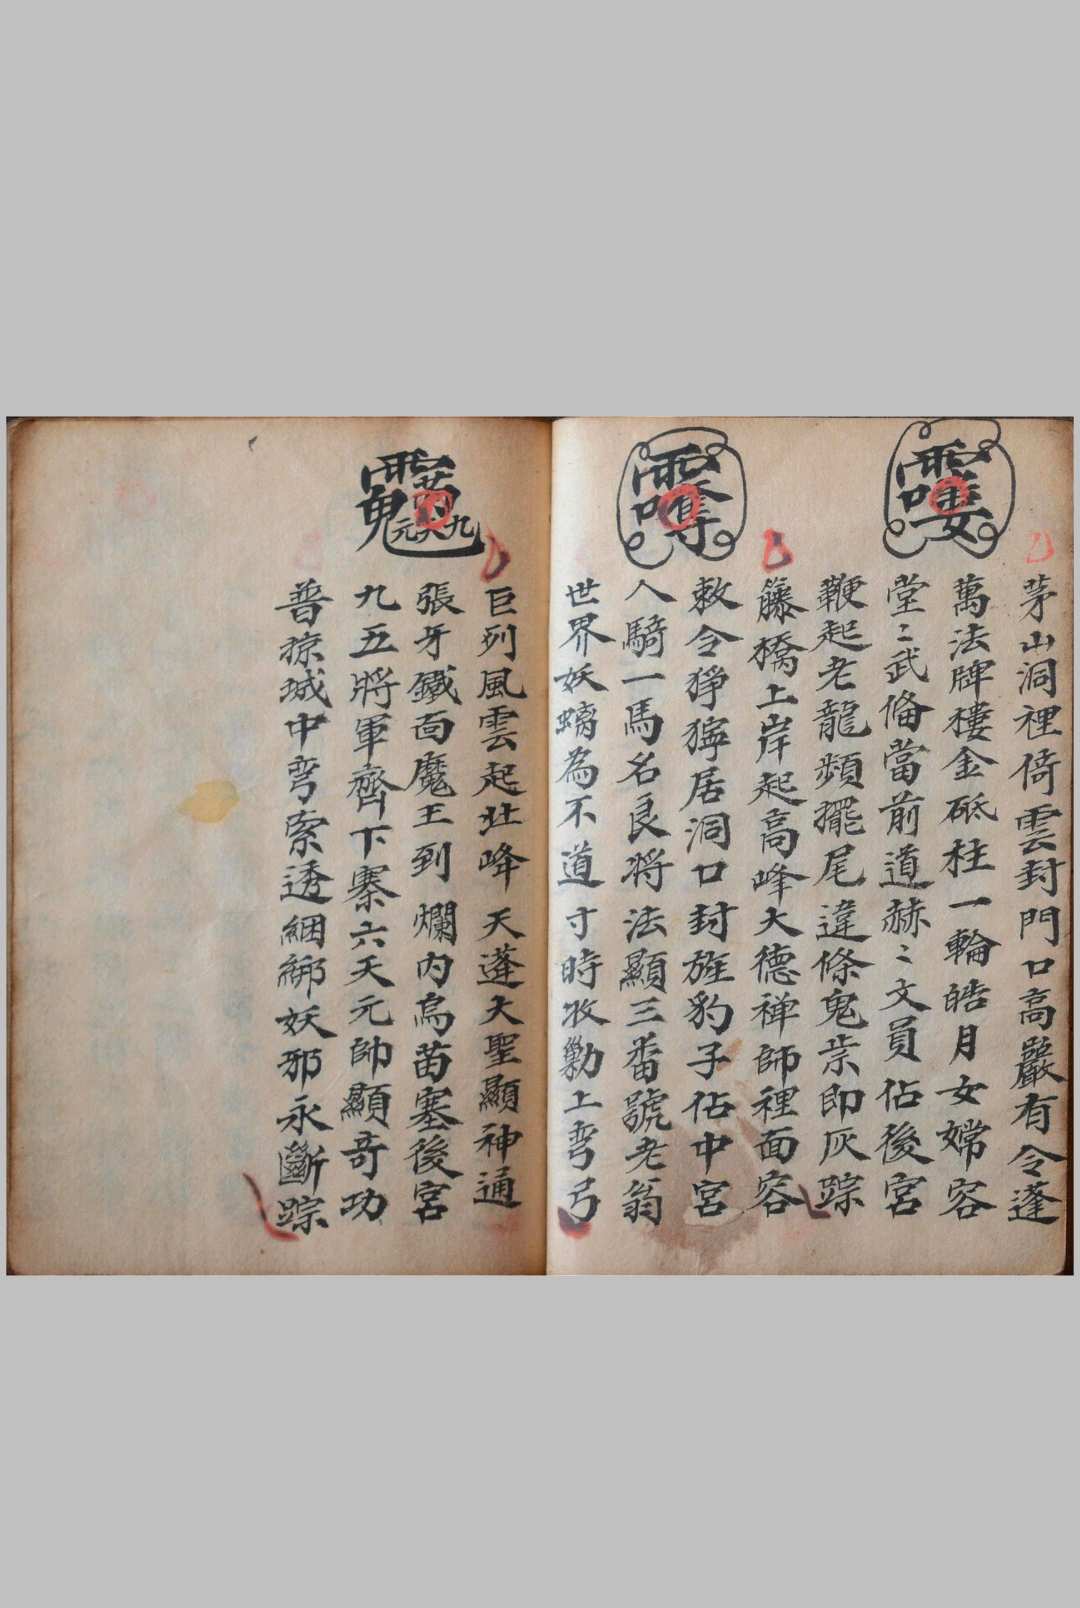 茅山洞裡倚雲封門口高嚴有令蓬
萬法牌樓金砥柱一輪皓月女嫦容
堂〻武俻當前道赫〻文員佔後宮
鞭起老龍頻擺尾違條鬼祟即灰踪
籐橋上岸起高峰大德禅師裡面容
敕令猙獰居洞口封旌豹子佔中宮
人騎一馬名良将法顯三番號老翁
世界妖螭為不道寸時收勦上弯弓
巨列風雲起壯峰天蓬大聖顯神通
張牙鐵面魔王到爛内烏茵塞後宮
九五將軍齊下寨六天元帥顯竒功
普掠城中弯索透綑綁妖邪永斷踪